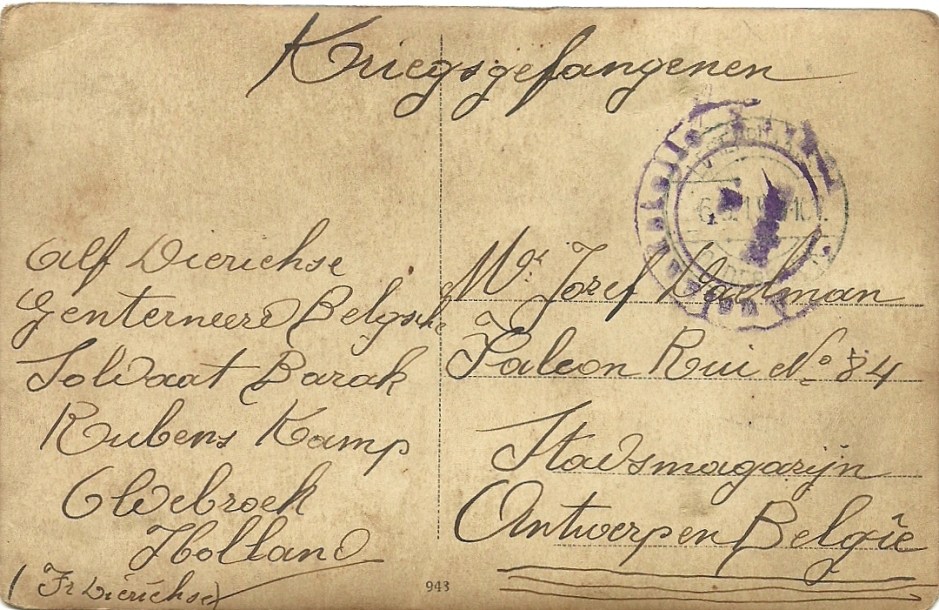 Kriegsgefangenen
Alf Dierickse
Genterneerd Belgsche
Soldaat Barak
Rubens Kamp
Oldebroek
Holland
(Fr Dierickse)
Mr. Jozef
Falcon Rui No. 84
Stadsmagazijn
Antwerpen België
943